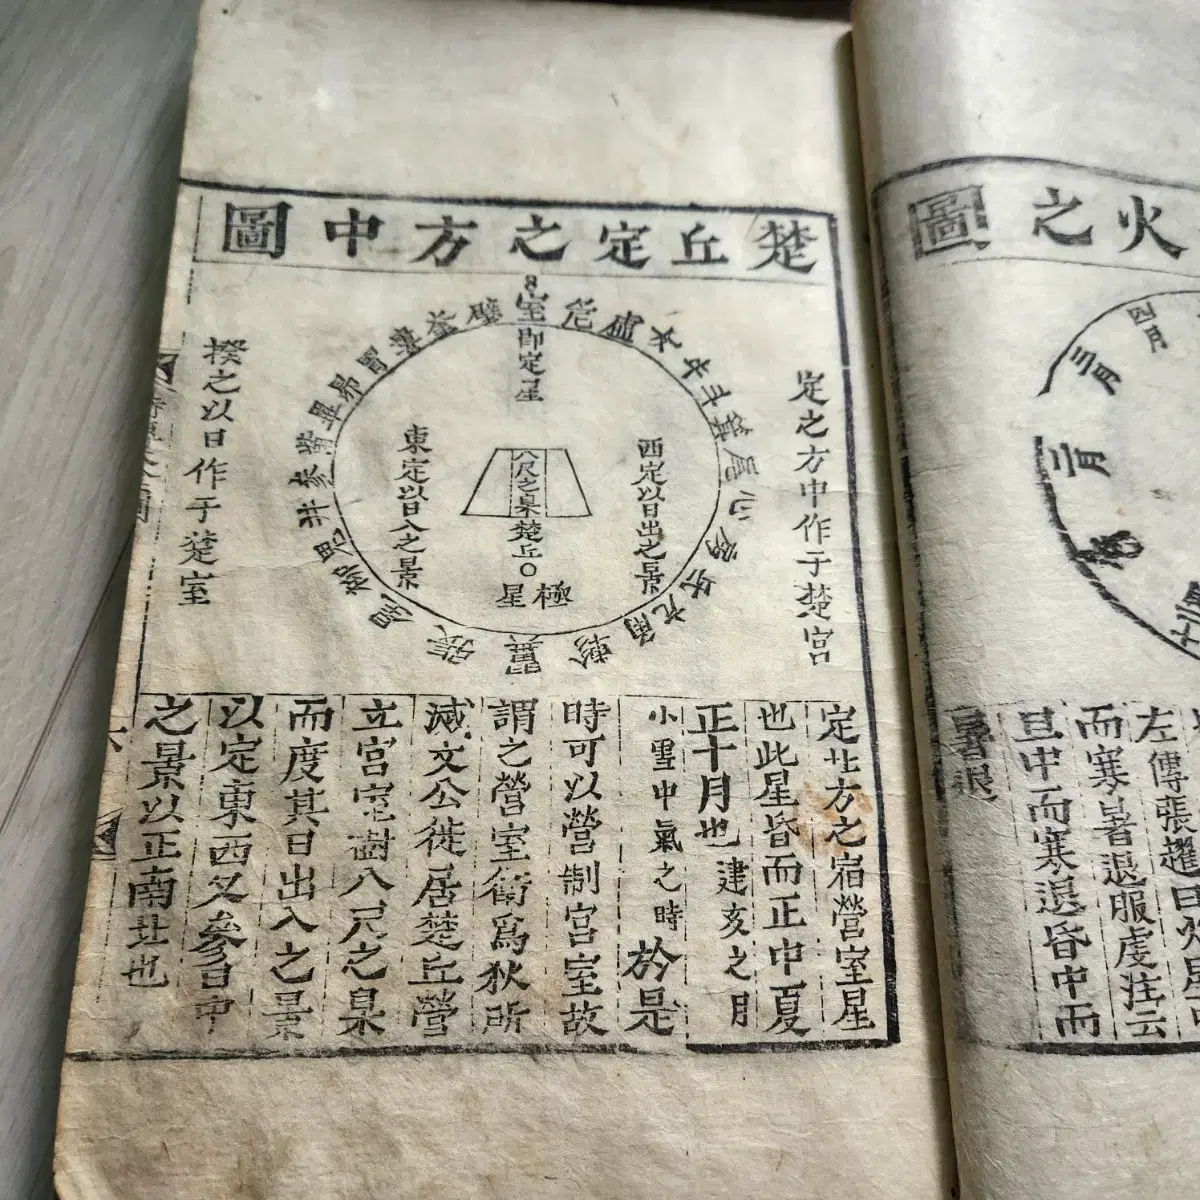 火之圖
四月
三月
二月
左傳張趯曰火星中
而寒暑退服虔注云
旦中而寒退昏中而
暑退
楚丘定之方中圖
定之方中作于楚宮
揆之以日作于楚室
室危虛女牛斗箕尾心房氐亢角軫翼張星柳鬼井參觜畢昴胃婁奎壁
即定星
西定以日出之景
八尺之臬楚丘
極星
東定以日入之景
定北方之宿營室星
也此星昏而正中夏
正十月也建亥之月
小雪中氣之時於是
時可以營制宮室故
謂之營室衛為狄所
滅文公徙居楚丘營
立宮室樹八尺之臬
而度其日出入之景
以定東西又參日中
之景以正南北也